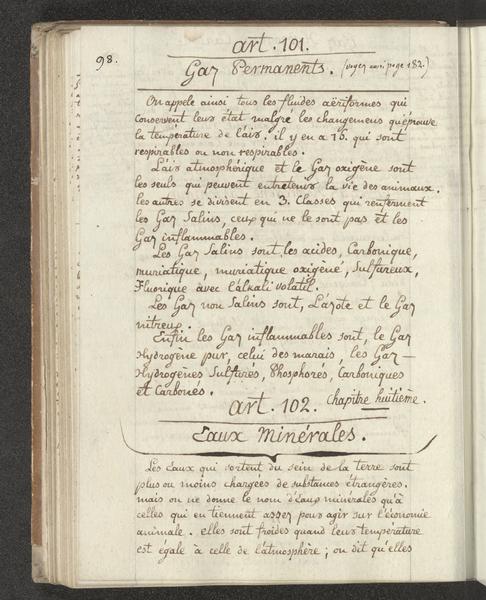 98.
art. 101.
Gaz Permanents. (voyez aussi page 182.)
On appele ainsi tous les fluides aëriformes qui
conservent leur état malgré les changemens qu'éprouve
la température de l'air. il y en a 16. qui sont
respirables ou non respirables.
L'air atmosphérique et le Gaz oxigène sont
les seuls qui peuvent entretenir la vie des animaux.
les autres se divisent en 3. Classes qui renferment
les Gaz Salins, ceux qui ne le sont pas et les
Gaz inflammables.
Les Gaz Salins sont, les acides, Carbonique,
muriatique, muriatique oxigené, Sulfureux,
Fluorique avec l'alkali volatil.
Les Gaz non Salins sont, L'azote et le Gaz
nitreux.
Enfin les Gaz inflammables sont, le Gaz
Hydrogène pur, celui des marais, les Gaz -
Hydrogènes Sulfurés, Phosphorés, Carboniques
et Carbonés.
Chapitre huitième.
art. 102.
Eaux Minérales.
Les Eaux qui sortent du sein de la terre sont
plus ou moins chargées de substances étrangères.
mais on ne donne le nom d'Eaux minérales qu'à
celles qui en tiennent assez pour agir sur l'économie
animale. elles sont froides quand leur température
est égale à celle de l'atmosphère ; on dit qu'elles